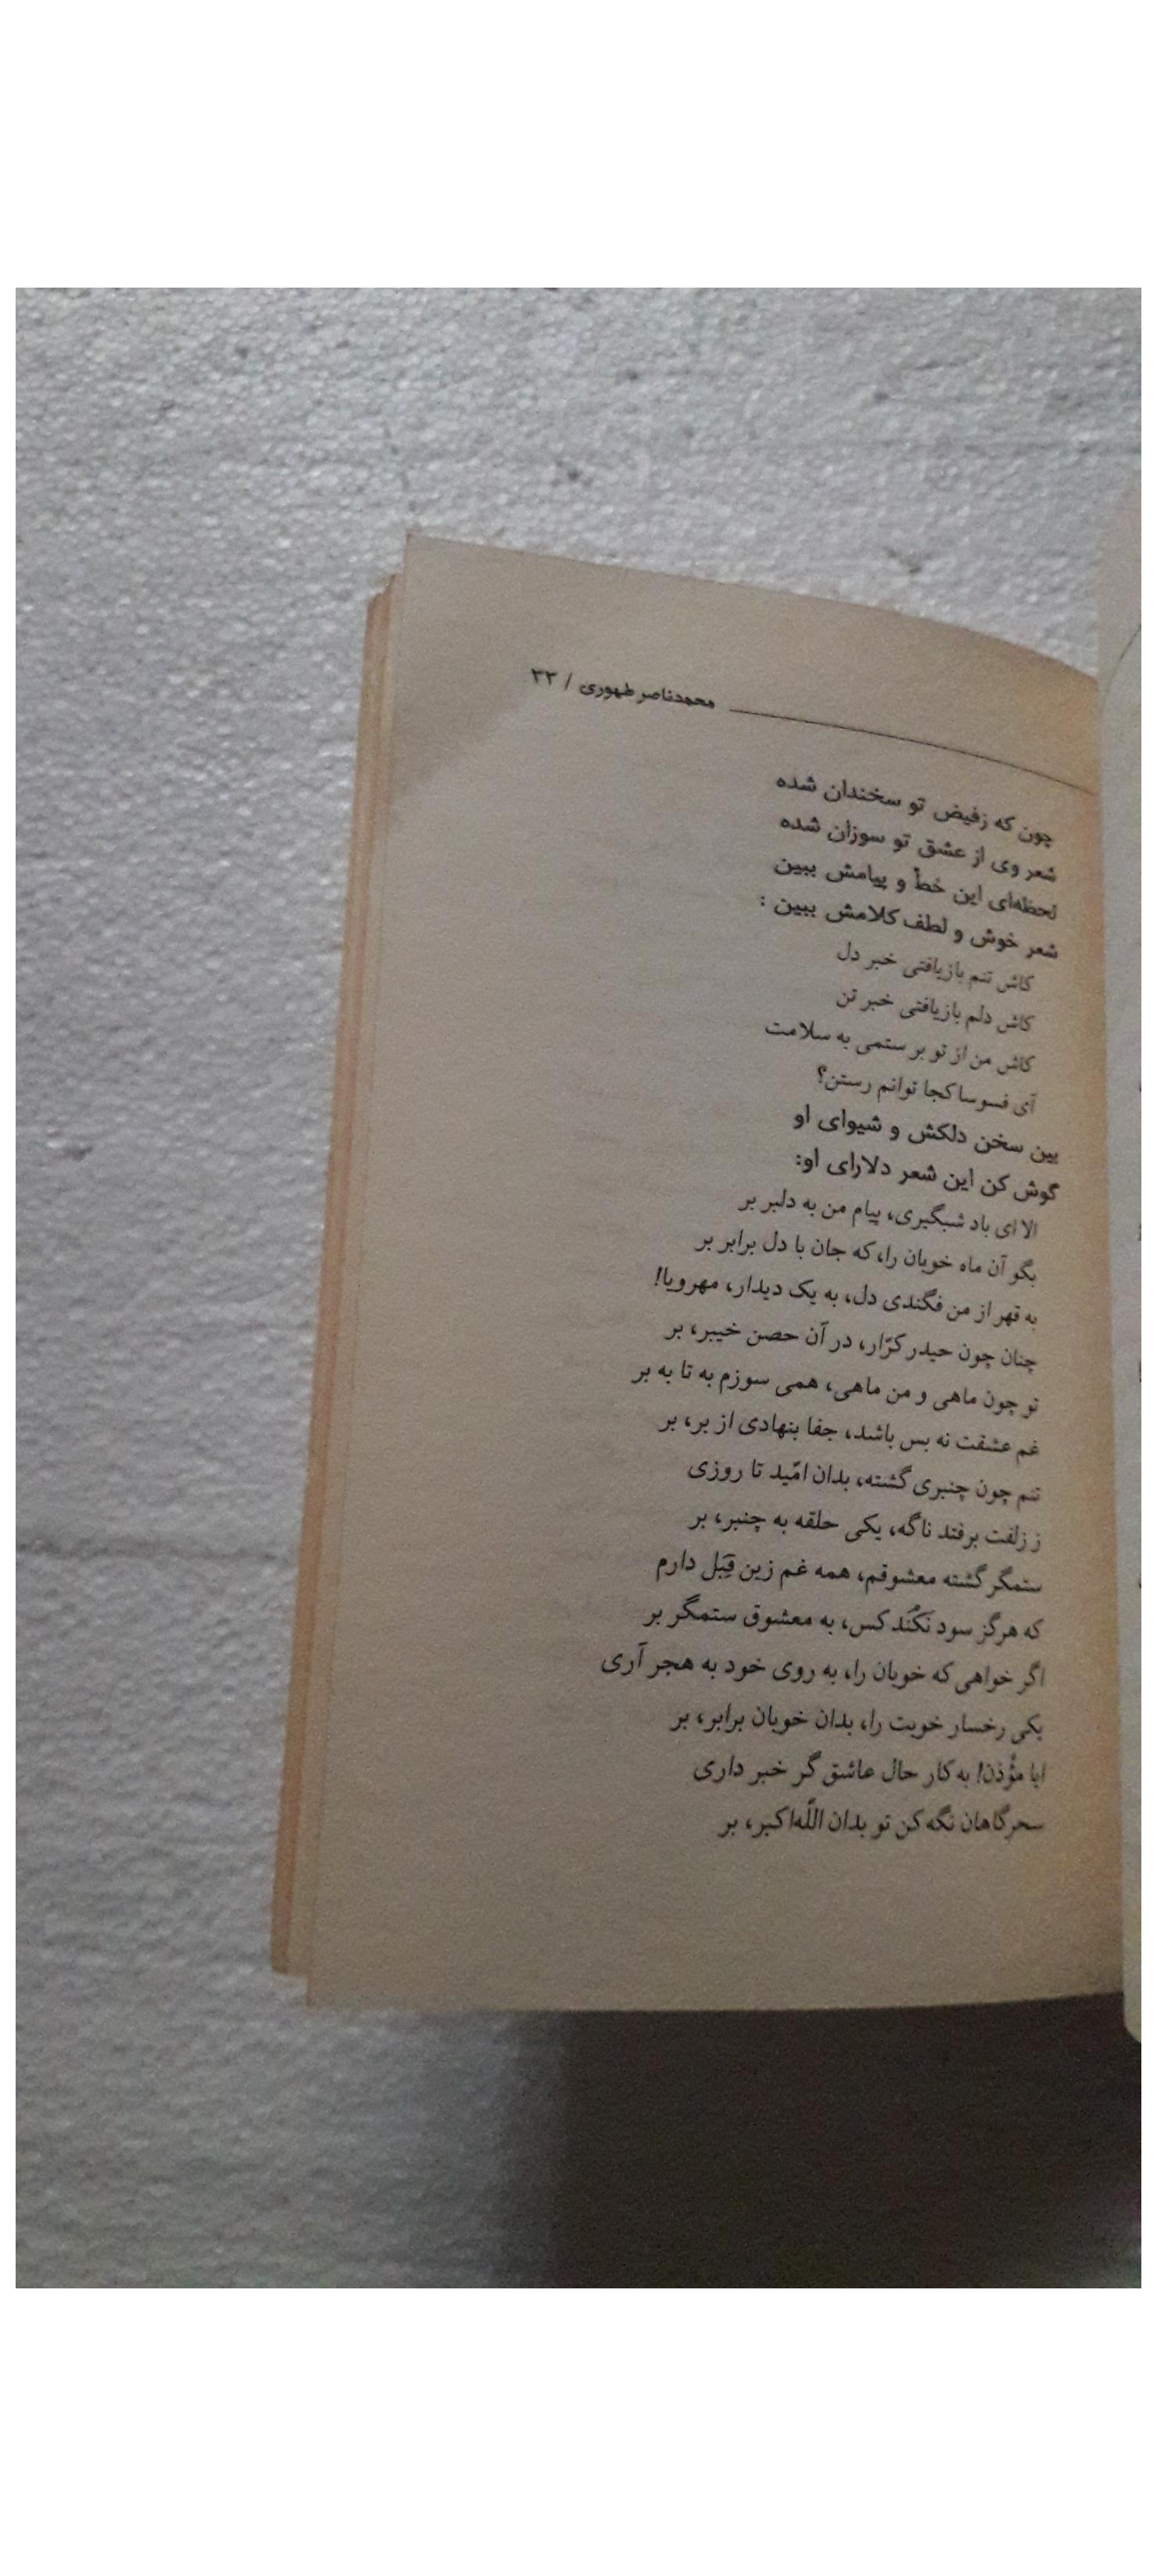 محمدناصر طهوری / ۳۳
چون که زفیض تو سخندان شده
شعر وی از عشق تو سوزان شده
لحظه‌ای این خطّ و پیامش ببین
شعر خوش و لطف کلامش ببین :
کاش تنم بازیافتی خبر دل
کاش دلم بازیافتی خبر تن
کاش من از تو بر ستمی به سلامت
آی فسوسا کجا توانم رستن؟
بین سخن دلکش و شیوای او
گوش کن این شعر دلارای او:
الا ای باد شبگیری، پیام من به دلبر بر
بگو آن ماه خوبان را، که جان با دل برابر بر
به قهر از من فگندی دل، به یک دیدار، مهرویا!
چنان چون حیدر کرّار، در آن حصن خیبر، بر
تو چون ماهی و من ماهی، همی سوزم به تا به بر
غم عشقت نه بس باشد، جفا بنهادی از بر، بر
تنم چون چنبری گشته، بدان امّید تا روزی
ز زلفت برفتد ناگه، یکی حلقه به چنبر، بر
ستمگر گشته معشوقم، همه غم زین قِبَل دارم
که هرگز سود نَکْنَد کس، به معشوق ستمگر بر
اگر خواهی که خوبان را، به روی خود به هجر آری
یکی رخسار خوبت را، بدان خوبان برابر، بر
ایا مؤذن! به کار حال عاشق گر خبر داری
سحرگاهان نگه کن تو بدان اللّه‌اکبر، بر